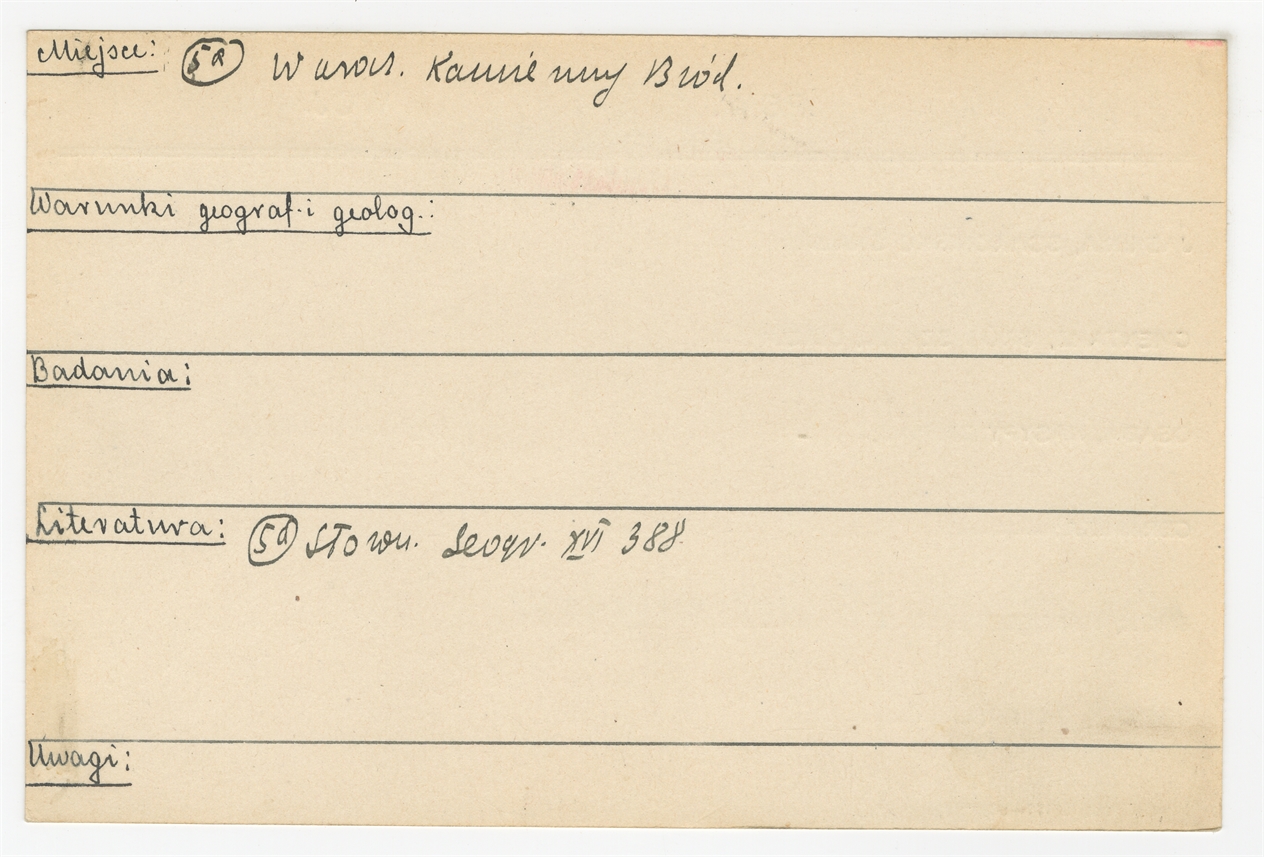 Miejsce: 5a W uroz. Kamienny Bród.
Warunki geograf. i geolog.:
Badania:
Literatura: 5a Słown. Geogr. XVI 388
Uwagi: